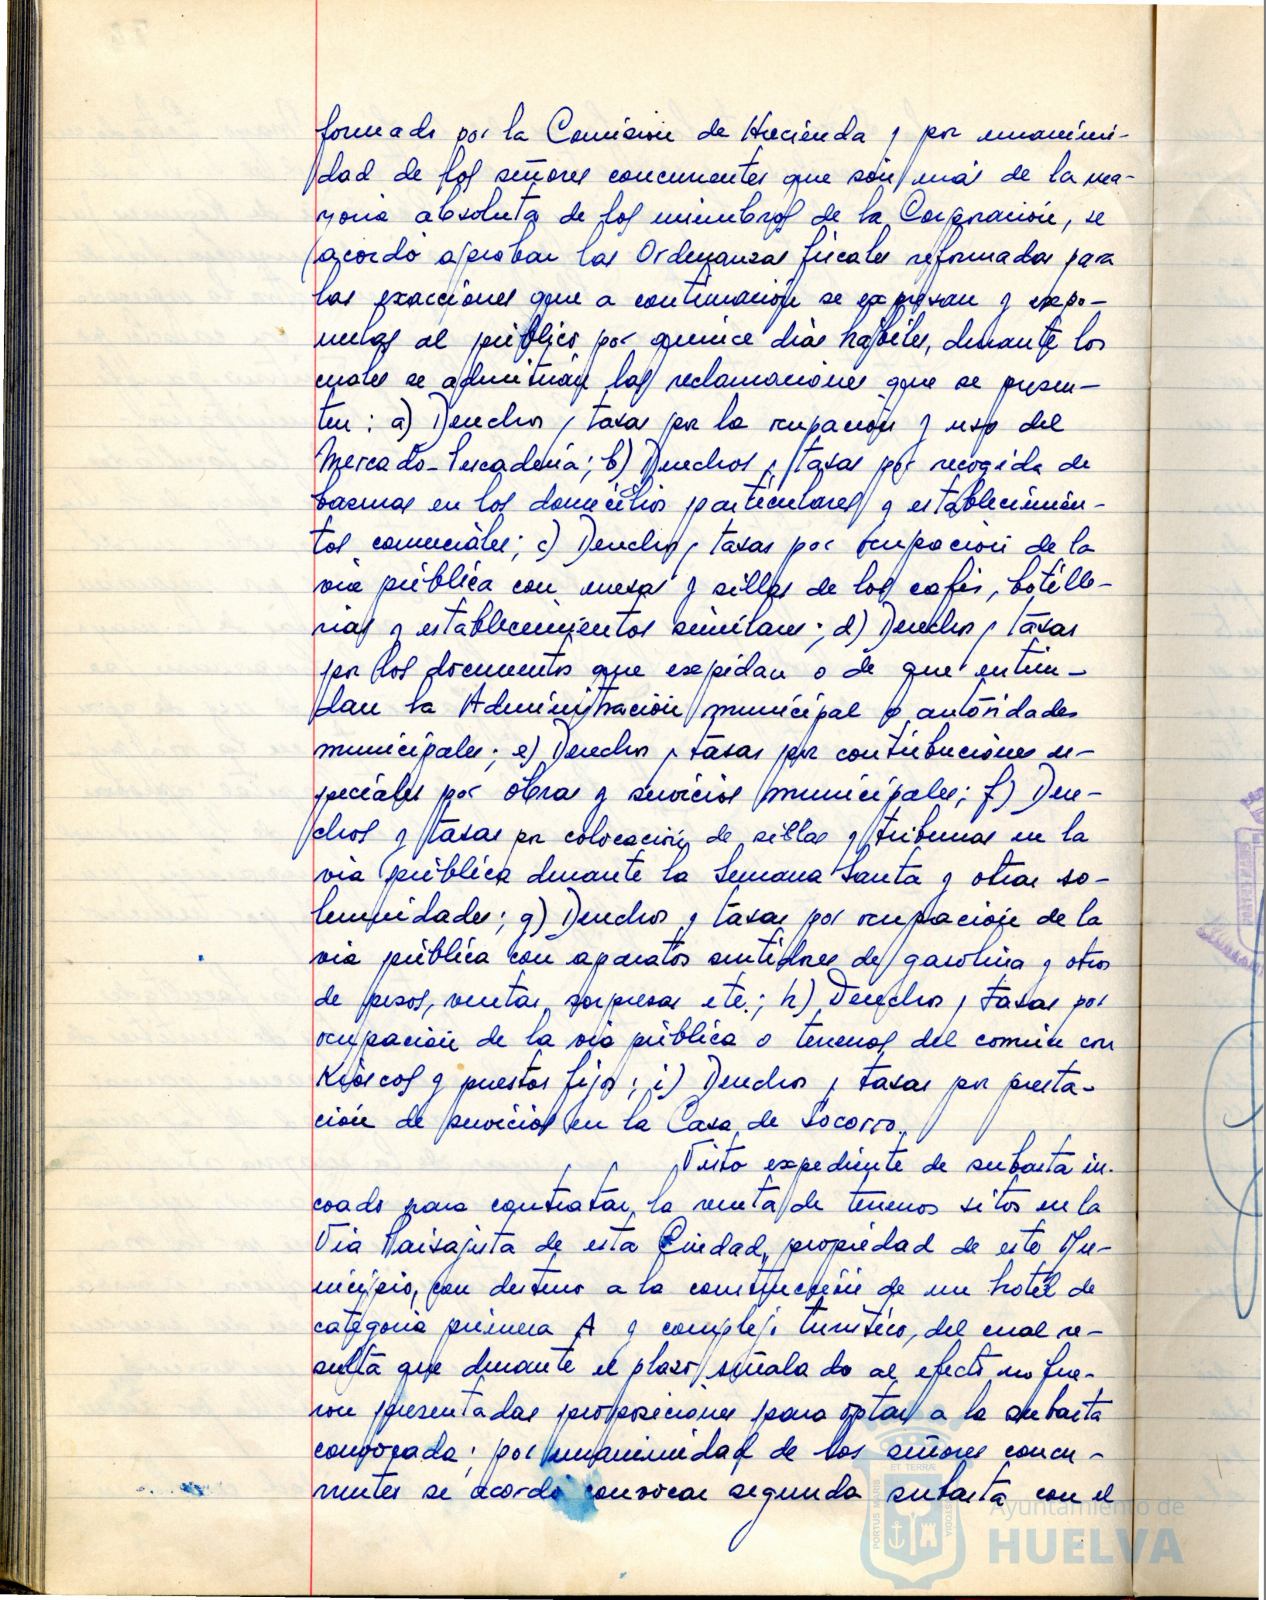 formado por la Comisión de Hacienda y por unanimi-
dad de los señores concurrentes que son más de la ma-
yoria absoluta de los miembros de la Corporación, se
acordó aprobar las Ordenanzas fiscales reformadas para
las exacciones que a continuación se expresan y expo-
nerlas al público por quince dias hábiles, durante los
cuales se admitirán las reclamaciones que se presen-
ten: a) Derechos y tasas por la ocupación y uso del
Mercado-Pescaderia; b) Derechos y tasas por recogida de
basuras en los domicilios particulares y establecimien-
tos comerciales; c) Derechos y tasas por ocupación de la
via pública con mesas y sillas de los cafés, botille-
rias y establecimientos similares; d) Derechos y tasas
por los documentos que expidan o de que entien-
dan la Administración municipal o autoridades
municipales; e) Derechos y tasas por contribuciones es-
peciales por obras y servicios municipales; f) Dere-
chos y tasas por colocación de sillas y tribunas en la
via pública durante la Semana Santa y otras so-
lemnidades; g) Derechos y tasas por ocupación de la
via pública con aparatos surtidores de gasolina y otros
de pesos, ventas, sorpresas etc.; h) Derechos y tasas por
ocupación de la via pública o terrenos del común con
Kioscos y puestos fijos; i) Derechos y tasas por presta-
ción de servicios en la Casa de Socorro.
Visto expediente de subasta in-
coado para contratar la venta de terrenos sitos en la
Via Paisajista de esta Ciudad, propiedad de este Mu-
nicipio, con destino a la construcción de un hotel de
categoria primera A y complejo turistico, del cual re-
sulta que durante el plazo señalado al efecto no fue-
ron presentadas proposiciones para optar a la subasta
convocada; por unanimidad de los señores concu-
rrentes se acordó convocar segunda subasta con el
Ayuntamiento de
HUELVA
PORTUS MARIS
ET TERRAE
CUSTODIA